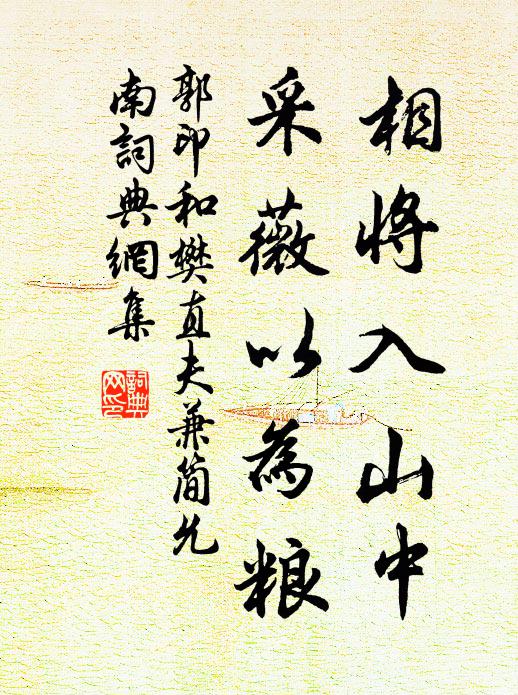 相将入山中
采薇以為粮
郭印和樊直夫兼简允
南詞典網集
詞典
网